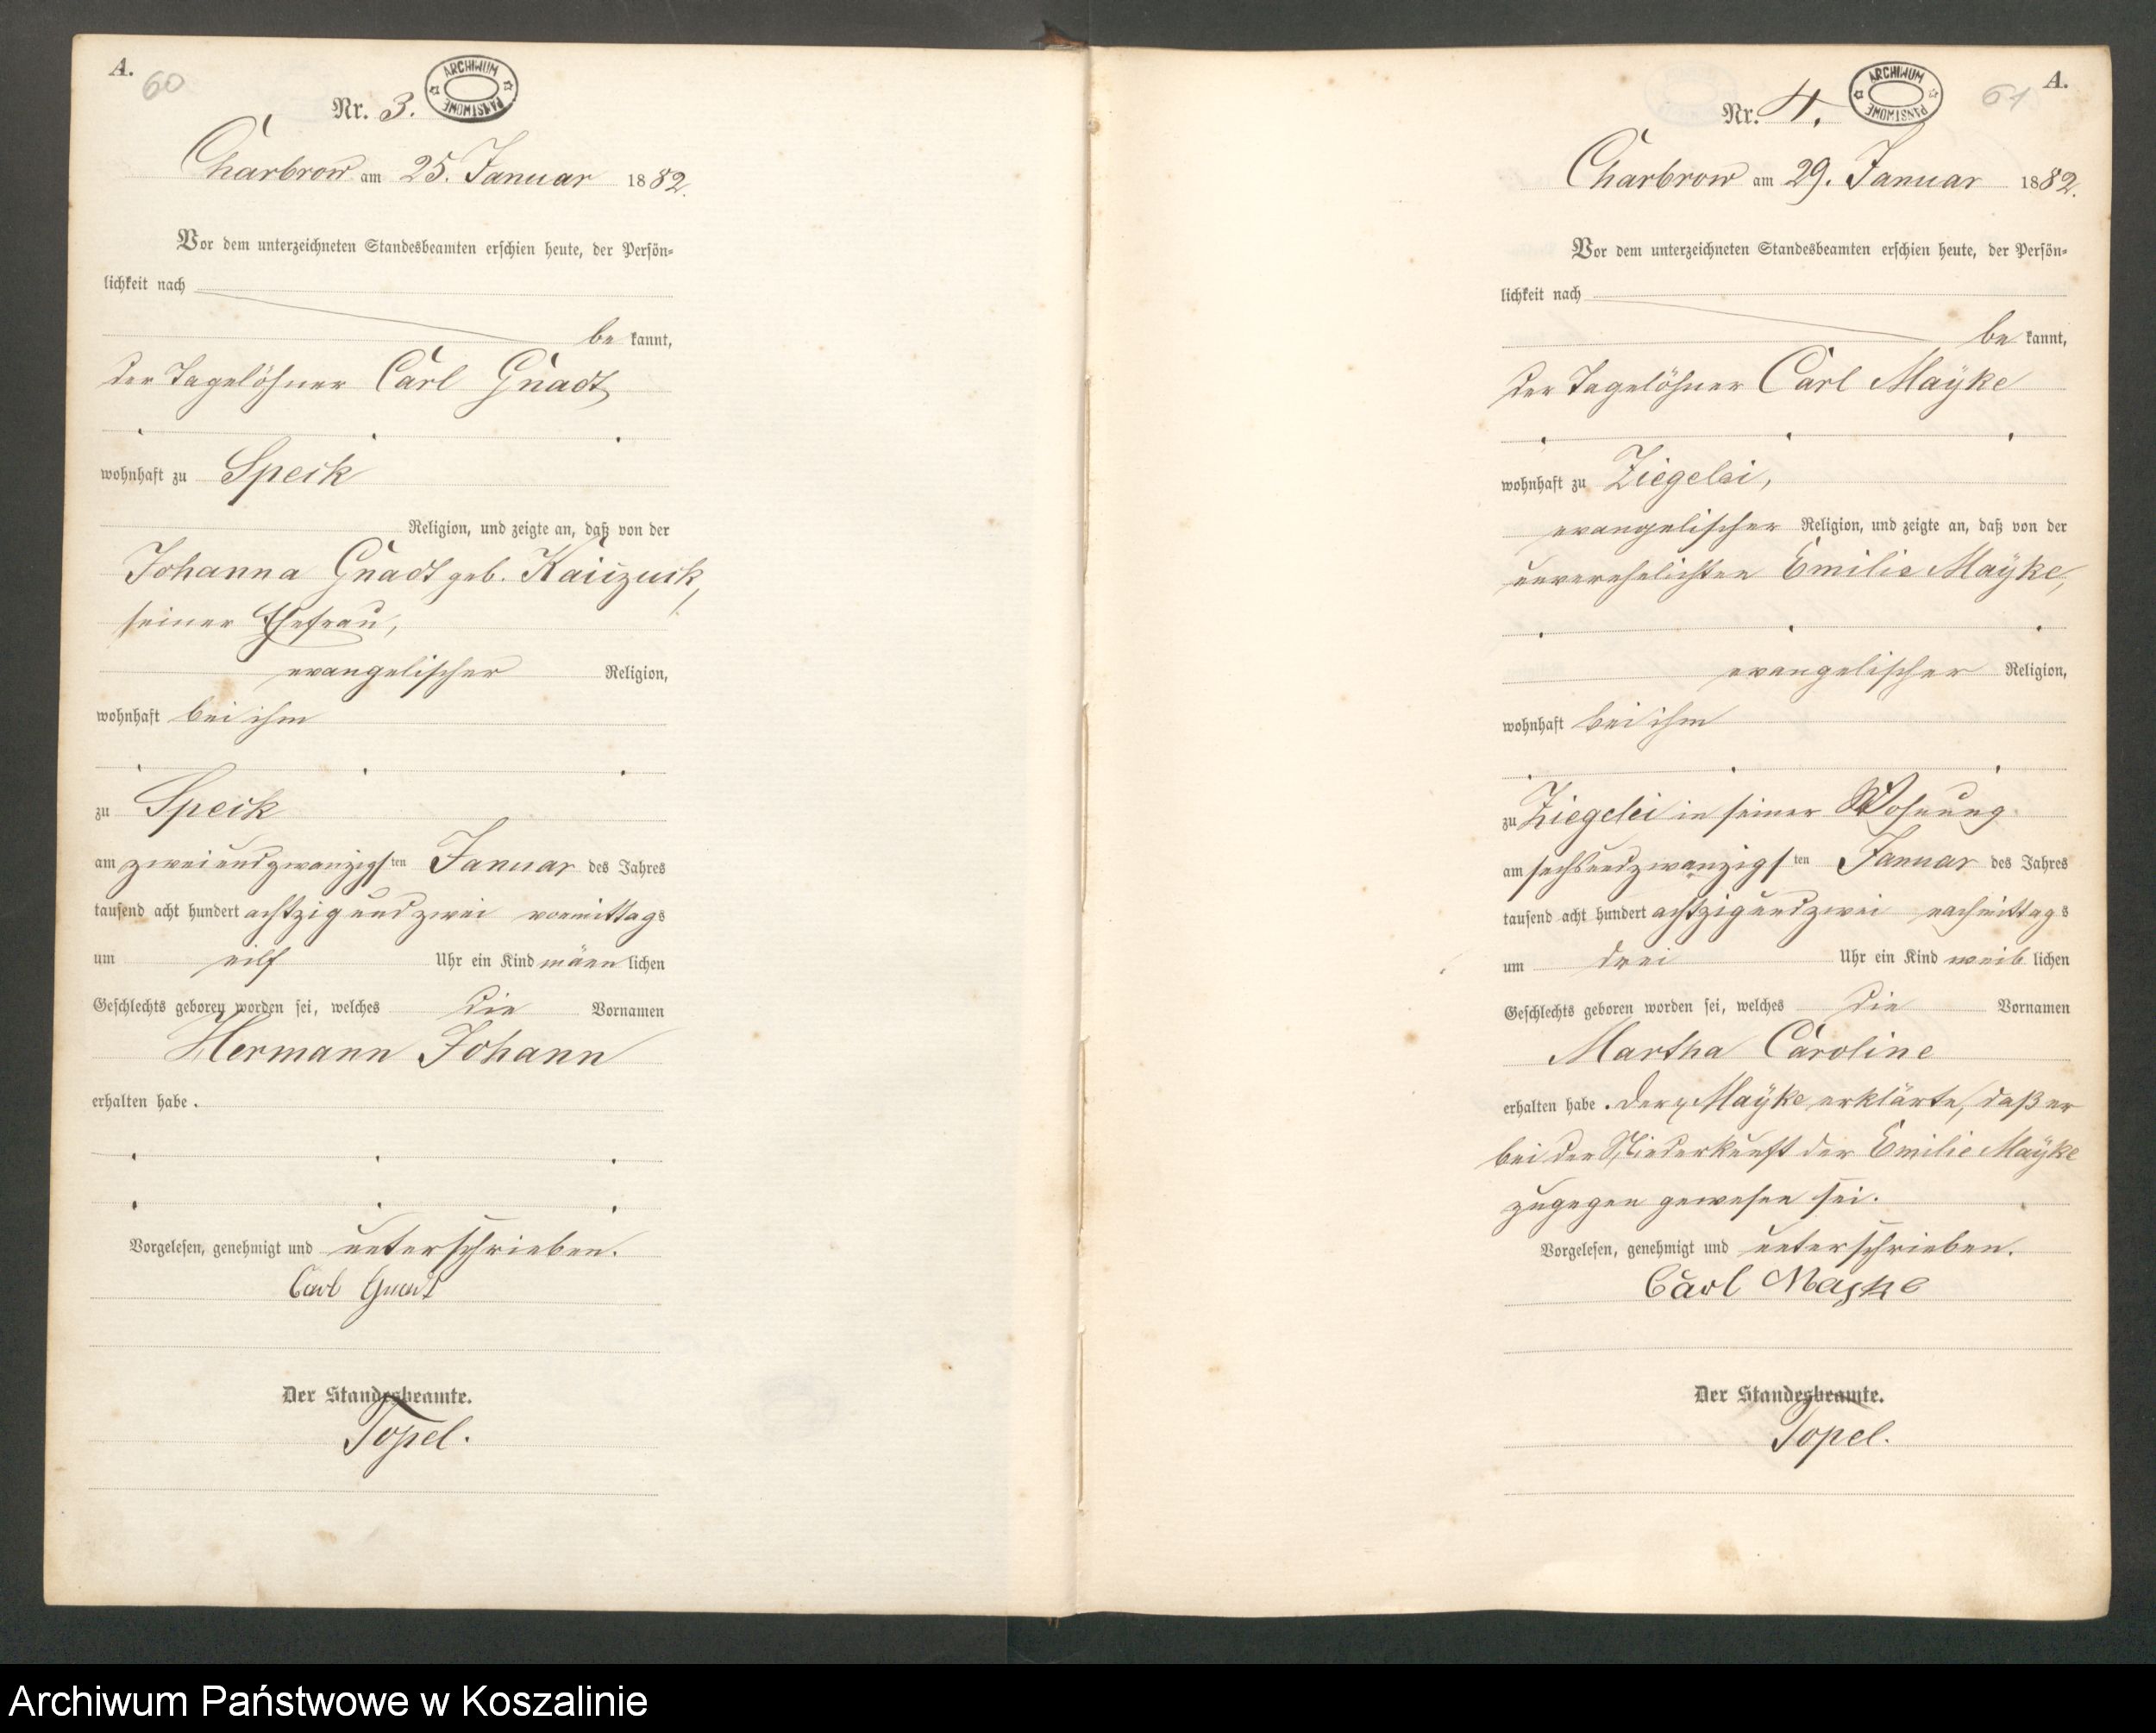 A.
60
Nr. 3.
ARCHIWUM PAŃSTWOWE
Charbrow am 25. Januar 1882.
Vor dem unterzeichneten Standesbeamten erschien heute, der Persön-
lichkeit nach
be kannt,
der Tagelöhner Carl Gnadt
wohnhaft zu Speck
Religion, und zeigte an, daß von der
Johanna Gnadt geb.
seiner Ehefrau,
evangelischer Religion,
wohnhaft bei ihm
zu Speck
am zweiundzwanzigsten Januar des Jahres
tausend acht hundert achtzig und zwei vormittags
um eilf Uhr ein Kind männlichen
Geschlechts geboren worden sei, welches die Vornamen
Hermann Johann
erhalten habe.
Vorgelesen, genehmigt und unterschrieben.
Carl Gnadt
Der Standesbeamte.
Topel.
A.
61
Nr. 4.
ARCHIWUM PAŃSTWOWE
Charbrow am 29. Januar 1882.
Vor dem unterzeichneten Standesbeamten erschien heute, der Persön-
lichkeit nach
be kannt,
der Tagelöhner Carl Mayke
wohnhaft zu Ziegelei,
evangelischer Religion, und zeigte an, daß von der
unverehelichten Emilie Mayke,
evangelischer Religion,
wohnhaft bei ihm
zu Ziegelei in seiner Wohnung
am sechsundzwanzigsten Januar des Jahres
tausend acht hundert achtzig und zwei nachmittags
um drei Uhr ein Kind weiblichen
Geschlechts geboren worden sei, welches die Vornamen
Martha Caroline
erhalten habe. Der Mayke erklärte, daß er
bei der Niederkunft der Emilie Mayke
zugegen gewesen sei.
Vorgelesen, genehmigt und unterschrieben.
Carl Mayke
Der Standesbeamte.
Topel.
Archiwum Państwowe w Koszalinie